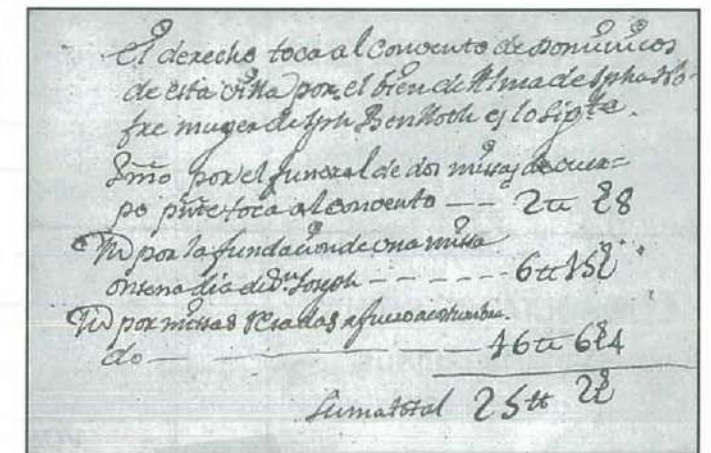 El derecho toca al Convento de Dominicos
de esta Villa por el bien de Alma de Jpha No-
fre muger de Jph Benlloch es lo sigte.
Pmo por el funeral de dos missas de cuer=
po pnte toca al convento -- 2 tt 8
Itt por la fundacion de una missa
onsena dia de Sn Joseph ------ 6 tt 15
Itt por missas resadas a fuero acostumbra-
do -- 16 tt 6 4
Suma total 25 tt 2